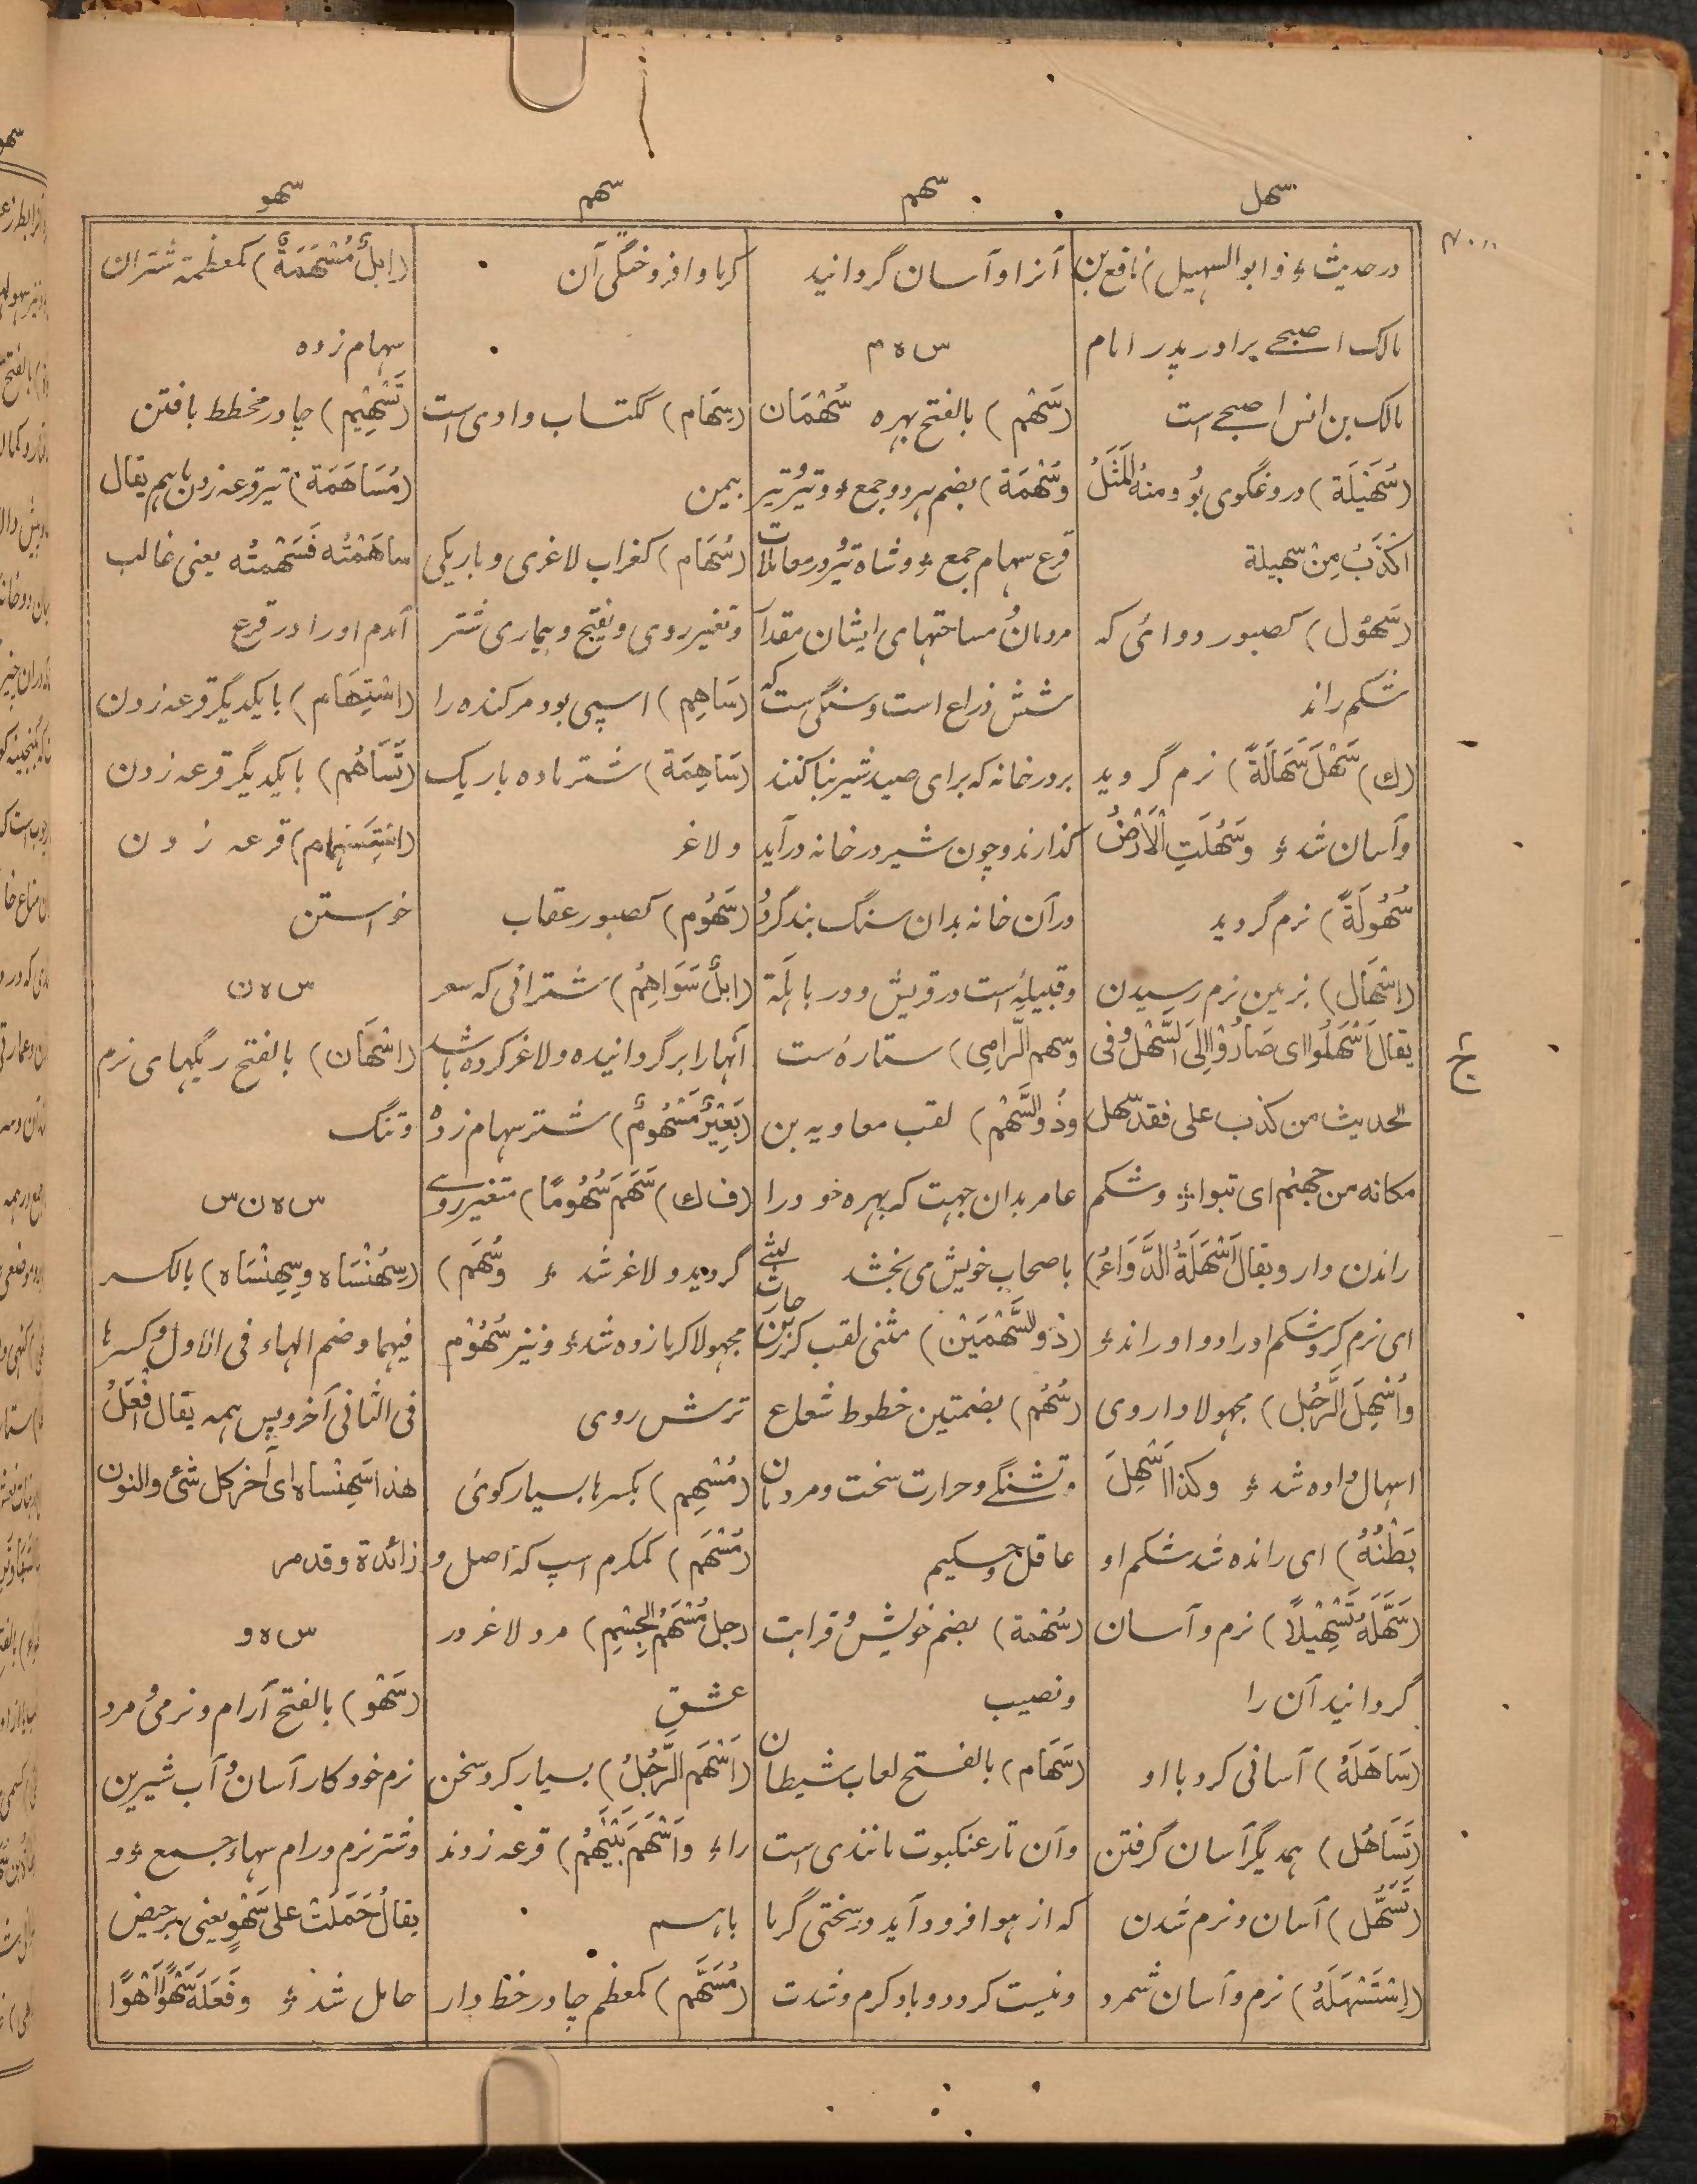 سهل
سهم
سهم
سهو
در حدیث ؛ و ابو السهیل) نافع بن
مالک اصبحے برادر پدر امام
مالک بن انس اصبحے است
(سُهَیْلَة) دروغگوی بُو ومنهُ المَثَلُ
اَکْذَبُ مِنْ سهیلة
(سَهُوْل) کصبور دوائی که
شکم راند
(ك) سَهُلَ سَهَالَةً) نرم گردید
وآسان شد ؛ وسَهُلَتِ الْاَرْضُ
سُهُولَةً) نرم گردید
(اِسْهَال) بزمین نرم رسیدن
یقال اَسْهَلُوا ای صَارُوْا اِلَی السَّهْل وُ فی
الحدیث من کذب علی فقد سهل
مکانه من جهنم ای تبواء ؛ وشکم
راندن دارو یقال اَسْهَلَهُ الدَّوَاءُ)
ای نرم کرد شکم اورا دوا وراند ؛
وَاُسْهِلَ الرَّجُل) مجهولا داروی
اسهال داده شد ؛ وکذا اُسْهِلَ
بَطْنُهُ) ای رانده شد شکم او
(سَهَّلَهُ تَسْهِیْلًا) نرم وآسان
گردانید آن را
(سَاهَلَهُ) آسانی کرد با او
(تَسَاهُل) همدیگر آسان گرفتن
(تَسَهُّل) آسان ونرم شدن
(اِسْتَسْهَلَهُ) نرم وآسان شمرد
آنرا وآسان گردانید
س ه م
(سَهْم) بالفتح بهره سُهْمَان
وسُهْمَة) بضم هر دو جمع ؛ وتیر وتیر
قرع سهام جمع ؛ وشاه تیر ودر معاملات
مردمان مساحتهای ایشان مقدار
شش ذراع است وسنگی ست که
بر در خانه که برای صید شیر بنا کنند
گذارند وچون شیر در خانه در آید
در آن خانه بدان سنگ بند گردد
وقبیله است در قریش ودر باهلة
وسهم الرامِی) ستاره ست
وذُو السَّهْم) لقب معاویه بن
عامر بدان جهت که بهره خود را
باصحاب خویش می بخشد
(ذُو السَّهْمَیْن) مثنی لقب کرز بن حارث لیثے
(سُهُم) بضمتین خطوط شعاع
وتشنگے وحرارت سخت ومردمان
عاقل وحکیم
(سُهْمة) بضم خویشی وقرابت
ونصیب
(سَهَام) بالفتح لعاب شیطان
وآن تار عنکبوت مانندی است
که از هوا فرود آید وسختی گرما
ونیست کردد وباد گرم وشدت
گرما وافروختگی آن
(سِهَام) ککتاب وادی است
بیمن
(سُهَام) کغراب لاغری وباریکی
وتغییر روی ویفتح وبیماری شتر
(سَاهِم) اسپی بود مر کنده را
(سَاهِمَة) شتر ماده باریک
ولاغر
(سَهُوْم) کصبور عقاب
(اِبلٌ سَوَاهِمُ) شترانی که سفر
آنها را برگردانیده ولاغر کرده باشد
(بَعِیْرٌ مَسْهُومٌ) شتر سهام زده
(ف ك) سَهَمَ سُهُومًا) متغیر روے
گردید ولاغر شد ؛ وسُهِم)
مجهولا گرما زده شد ؛ ونیز سُهُوْم
ترش روی
(مُسْهِم) بکسر ها بسیار گوی
(مُسْهَم) کمکرم اسپ کذا اصل و
رجل مُسْهَمُ الجِسْم) مرد لاغر در
عشق
(اَسْهَم الرَّجُلُ) بسیار کرد سخن
را ؛ واَسْهَم بَیْنَهُمْ) قرعه زوند
باهم
(مُسَهَّم) کمعظم چادر خط دار
(اِبلٌ مُسَهَّمَةٌ) کمعظمة شتران
سهام زده
(تَسْهِیْم) چادر مخطط بافتن
(مُسَاهَمَة) تیر قرعه زدن باهم یقال
ساهَمْتُه فَسَهَمْتُه یعنی غالب
آمدم اورا در قرع
(اِسْتِهَام) با یکدیگر قرعه زدن
(تَسَاهُم) با یکدیگر قرعه زدن
(اِسْتِسْهام) قرعه زدن
خواستن
س ه ن
(اَسْهَان) بالفتح ریگهای نرم
وتنگ
س ه ن س
(سِهْنْسَاه وسِهِنْسَاه) بالکسر
فیهما وضم الهاء فی الاول وکسرها
فی الثانی آخر وپس همه یقال اِفْعَلْ
هذا سِهِنْساه ای آخر کل شئ والنون
زائدة وقد مر
س ه و
(سَهْو) بالفتح آرام ونرمی مرد
نرم خو وکار آسان وآب شیرین
وشتر نرم ورام سهاء جمع ؛ و
یقال حَمَلَتْ علی سَهْوٍ یعنی بر حیض
حامل شد ؛ وفَعَلَهُ سَهْوًا رَهْوًا